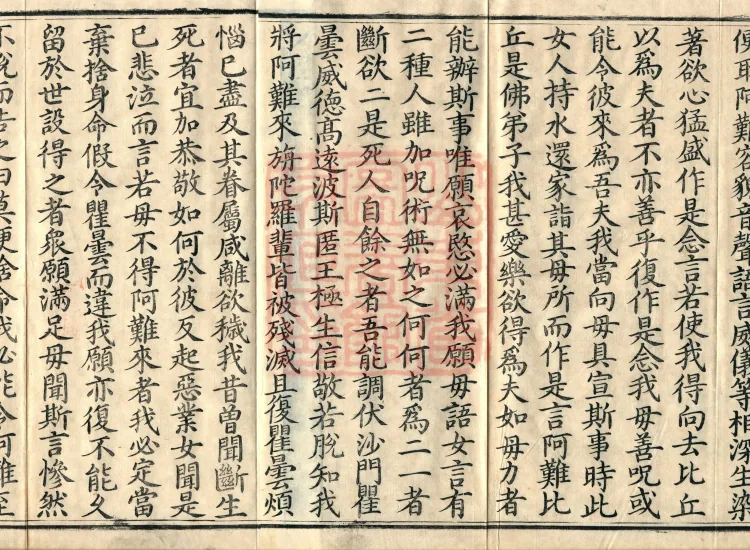 便取阿難容貌音聲語言威儀等相深生染
著欲心猛盛作是念言若使我得向去比丘
以爲夫者不亦善乎復作是念我母善呪或
能令彼來爲吾夫我當向母具宣斯事時此
女人持水還家詣其母所而作是言阿難比
丘是佛弟子我甚愛樂欲得爲夫如母力者
能辦斯事唯願哀愍必滿我願母語女言有
二種人雖加呪術無如之何何者爲二一者
斷欲二是死人自餘之者吾能調伏沙門瞿
曇威德髙遠波斯匿王極生信敬若脫知我
將阿難來旃陀羅輩皆被殘滅且復瞿曇煩
惱已盡及其眷屬咸離欲穢我昔曾聞斷生
死者宜加恭敬如何於彼反起惡業女聞是
已悲泣而言若母不得阿難來者我必定當
棄捨身命假令瞿曇而違我願亦復不能久
留於世設得之者衆願滿足母聞斯言慘然
不悅而告之曰莫便捨命我必能令阿難至